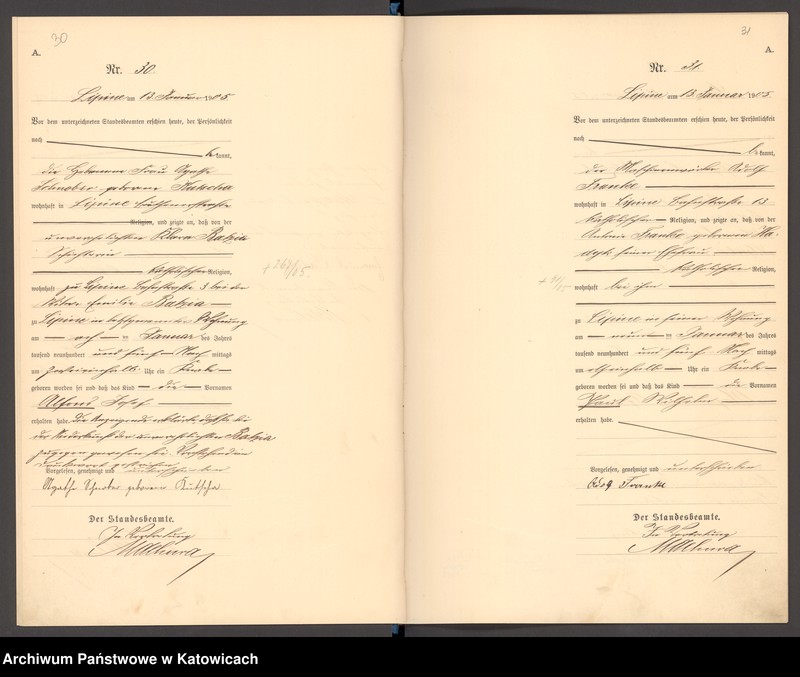 30
A.
Nr. 30.
Lipine am 13 Januar 1905.
Vor dem unterzeichneten Standesbeamten erschien heute, der Persönlichkeit
nach
bekannt,
die Hebamme Frau Agathe
Schnober geborene Kutscha
wohnhaft in Lipine
Religion, und zeigte an, daß von der
unverehelichten Klara Bahia
katholischer Religion,
wohnhaft zu Lipine, 3 bei der
Witwe Emilie Bahia
zu Lipine in Wohnung
am acht en Januar des Jahres
tausend neunhundert und fünf Nach mittags
um Uhr ein Knabe
geboren worden sei und daß das Kind die Vornamen
Alfred Josef
erhalten habe. Die Anzeigende erklärte, daß sie bei
der Niederkunft der unverehelichten Bahia
zugegen gewesen sei.
Vorgelesen, genehmigt und unterschrieben
Agathe Schnober geborene Kutscha
Der Standesbeamte.
In Vertretung
+ 263/05
31
A.
Nr. 31.
Lipine am 13 Januar 1905.
Vor dem unterzeichneten Standesbeamten erschien heute, der Persönlichkeit
nach
bekannt,
der Maschinenwärter Adolf
Franke
wohnhaft in Lipine 13
katholischer Religion, und zeigte an, daß von der
Antonie Franke geborenen
seiner Ehefrau
katholischer Religion,
wohnhaft bei ihm
zu Lipine in seiner Wohnung
am neun en Januar des Jahres
tausend neunhundert und fünf Nach mittags
um Uhr ein Knabe
geboren worden sei und daß das Kind die Vornamen
Paul Wilhelm
erhalten habe.
Vorgelesen, genehmigt und unterschrieben
Adolf Franke
Der Standesbeamte.
In Vertretung
Archiwum Państwowe w Katowicach